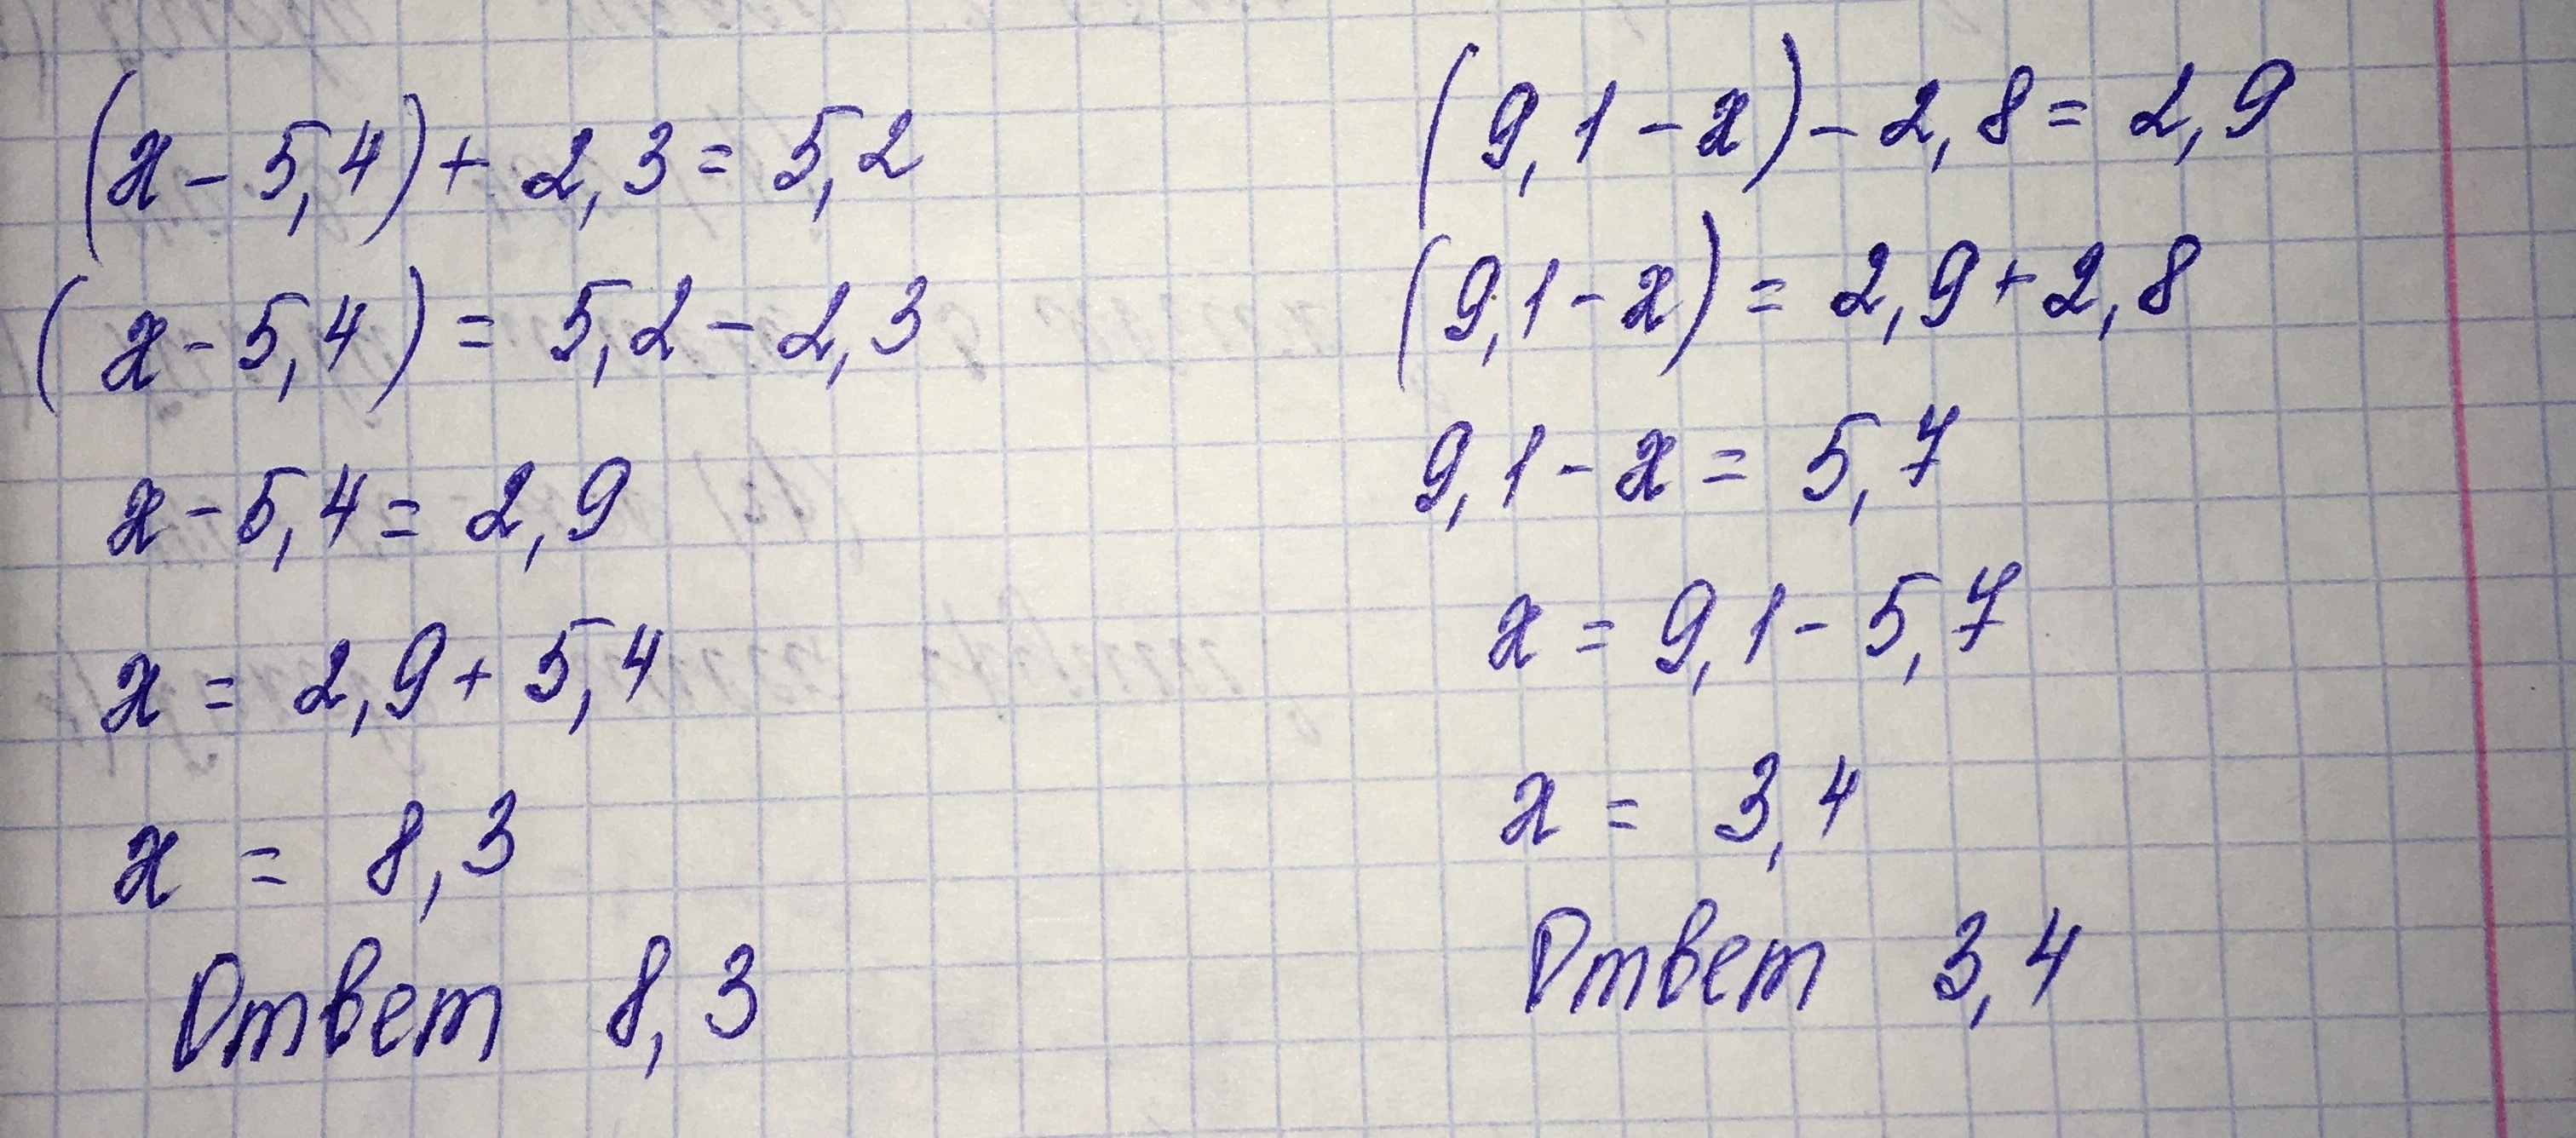 (x - 5,4) + 2,3 = 5,2
(x - 5,4) = 5,2 - 2,3
x - 5,4 = 2,9
x = 2,9 + 5,4
x = 8,3
Ответ 8,3
(9,1 - x) - 2,8 = 2,9
(9,1 - x) = 2,9 + 2,8
9,1 - x = 5,7
x = 9,1 - 5,7
x = 3,4
Ответ 3,4